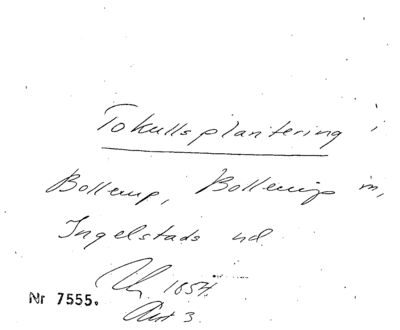 Tokullsplantering i
Bollerup, Bollerup sn,
Ingelstads hd.
1854.
Nr 7555.
Akt 3.